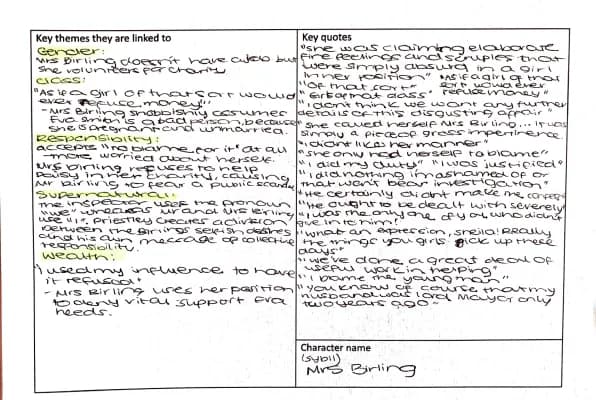 Key themes they are linked to
Gender:
Mrs Birling doesn't have a job but
she volunteers for charity
class:
"As if a girl of that sort would
ever refuse money"
- Mrs Birling snobbishly assumes
Eva Smith is a bad person, because
she is pregnant and unmarried.
Responsibility:
accepts "no blame for it" at all
- more worried about herself.
Mrs Birling refuses to help
Daisy in her charity, causing
Mr Birling to fear a public scandal
Supernatural:
The inspector uses the pronoun
"we" whereas Mr and Mrs Birling
use 'I', Priestley creates a division
between the Birlings selfish desires
and his own message of collective
responsibility.
Wealth:
"I used my influence to have
it refused"
- Mrs Birling uses her position
to deny vital support Eva
needs.
Key quotes
"she was claiming elaborate
fine feelings and scruples that
were simply absurd in a girl
in her position" "As if a girl of that
"of that sort" sort would ever
"Girls of that class" refuse money"
"I don't think we want any further
details of this disgusting affair"
"she called herself Mrs Birling... it was
simply a piece of gross impertinence
"I didnt like her manner"
"she only had herself to blame"
"I did my duty" "I was justified"
"I did nothing im ashamed of or
that won't bear investigation"
"He certainly didnt make me confess
"He ought to be dealt with severely"
"I was the only one of you who didn't
give in to him!
"What an expression, sheila! Really
the things you girls pick up these
days"
"we've done a great deal of
useful work in helping"
"I blame the young man"
"you know of course that my
husband was lord Mayor only
two years ago -
Character name
(sybil)
Mrs Birling